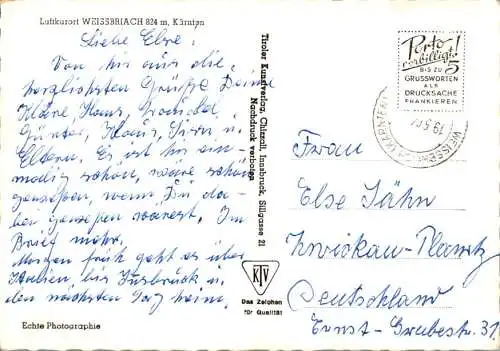 Luftkurort WEISSBRIACH 824 m, Kärnten
Liebe Else!
Von hier aus die
herzlichsten Grüße Deine
Klara, Hans,
Günter, Klaus,
Eltern. Es ist hier ein-
malig schön, wäre schön
gewesen, wenn Du da-
bei gewesen wärest. Im
Brief mehr.
Morgen früh geht es über
Italien bis Insbruck u.
den nächsten Tag heim.
Echte Photographie
Tiroler Kunstverlag, Chizzali, Innsbruck, Sillgasse 21
Nachdruck verboten
KTV
Das Zeichen
für Qualität
Porto
verbilligt!
BIS ZU 5
GRUSSWORTEN
ALS
DRUCKSACHE
FRANKIEREN
Frau
Else Jähn
Zwickau-Planitz
Deutschland
Ernst-Grubestr. 31